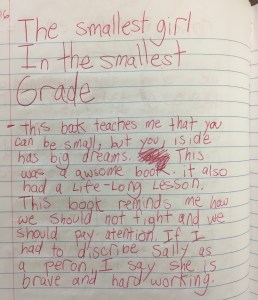 16
The smallest girl
In the smallest
Grade
- This book teaches me that you
can be small, but you, iside
has big dreams. This
was a awsome book. it also
had a Life-Long Lesson.
This book reminds me how
we should not fight and we
should pay atention. If I
had to discribe Sally as
a peron, I say she is
brave and hard working.